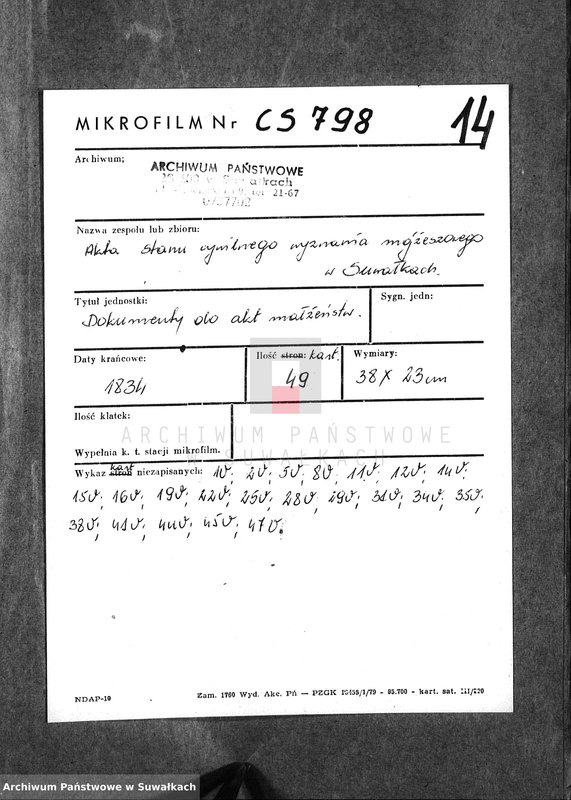 MIKROFILM Nr CS 798
14
Archiwum;
ARCHIWUM PAŃSTWOWE
21-67
Nazwa zespołu lub zbioru:
Akta stanu cywilnego wyznania mojżeszowego
w Suwałkach.
Tytuł jednostki:
Dokumenty do akt małżeństw.
Sygn. jedn:
Daty krańcowe:
1834
Ilość stron: kart.
49
Wymiary:
38 x 23 cm
Ilość klatek:
ARCHIWUM PAŃSTWOWE
W SUWAŁKACH
Wypełnia k. t. stacji mikrofilm.
Wykaz stron kart niezapisanych: 1v; 2v; 5v; 8v; 11v; 12v; 14v;
15v; 16v; 19v; 22v; 25v; 28v; 29v; 31v; 34v; 35v;
38v; 41v; 44v; 45v; 47v.
NDAP-10
Zam. 1760 Wyd. Akc. Pń — PZGK 1-79 - 95.700 - kart. sat. III/220
Archiwum Państwowe w Suwałkach